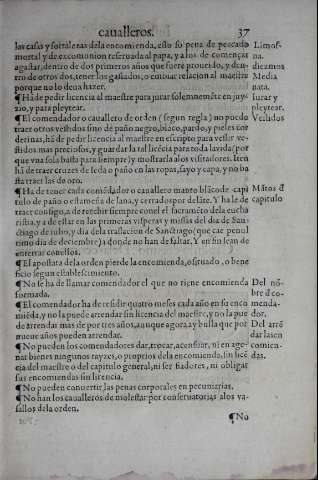 caualleros. 37
las casas y fortalezas dela encomienda, esto so pena de peccado
mortal y de excomunion reseruada al papa, y a los de començar
a gastar, dentro de dos primeros años que fuere proueydo, y den-
tro de otros dos, tener los gastados, o embiar relacion al maestre
porque no lo deua hazer.
¶Ha de pedir licencia al maestre para jurar solemnemẽte en juy-
zio, y para pleytear.
¶El comendador o cauallero de orden (segun regla) no puedo
traer otros vestidos sino de paño negro, blãco, pardo, y pieles cor
derinas, hã de pedir licencia al maestre en escripto para vestir ve-
stidos mas preciados, y guardar la tal licẽcia para toda la vida (por
que vna sola basta para siempre) y mostrarla alos visitadores. Item
hã de traer cruzes de seda o paño en las ropas, sayo y capa, y no ba
sta traer las de oro.
¶Ha de tener cada comẽdador o cauallero manto blãco de capi
tulo de paño o estameña de lana, y cerrado por delãte. Y ha le de
traer consigo, a de rescebir siempre conel el sacramẽto dela eucha
ristia, y a de estar en las primeras visperas y missas del dia de San-
ctiago de julio, y dia dela traslacion de Sanctiago (que cae penul
timo dia de deciembre) a donde no han de faltar. Y en fin se an de
enterrar con ellos.
¶El apostata dela orden pierde la encomienda, o situado, o bene
ficio segun establescimiento.
¶No se ha de llamar comendador el que no tiene encomienda
formada.
¶El comendador ha de residir quatro meses cada año en su enco
miẽda, y no la puede arrendar sin licencia del maestre, y no la pue
de arrendar mas de por tres años, aunque agora ay bulla que por
nueue años pueden arrendar.
¶No pueden los comendadores dar, trocar, acensuar, ni en age-
nar bienes ningunos rayzes, o proprios dela encomienda, sin licẽ
cia del maestre o del capitulo general, ni ser fiadores, ni obligar
sus encomiendas sin licencia.
¶No pueden conuertir las penas corporales en pecuniarias.
¶No han los caualleros de molestar por conseruatorias alos va-
sallos dela orden.
¶No
Limos-
na.
diezmos
Media
nata.
Iurar y
pleytear.
Vestidos
Mãtos d̃
capitulo
Del nõ-
bre d̃ co-
menda-
dor.
Del arrẽ
dar las en
comien-
das.